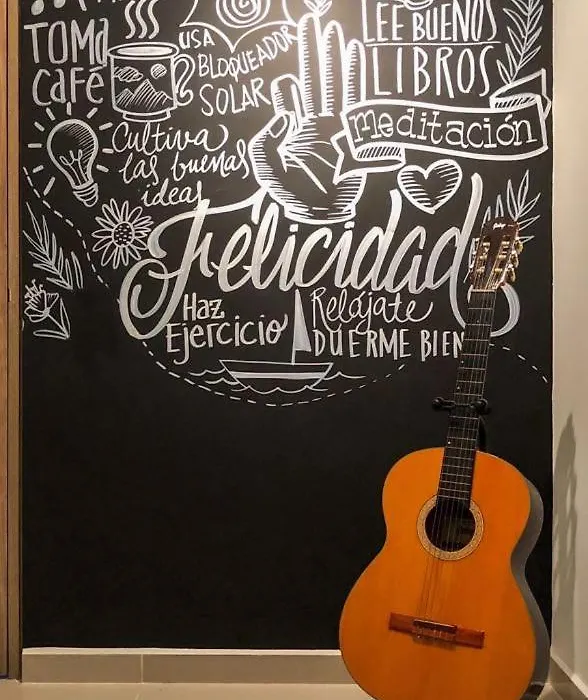 TOMA
café
USA
BLOQUEADOR
SOLAR
LEE BUENOS
LIBROS
meditación
Cultiva
las buenas
ideas
Felicidad
Haz
Ejercicio
Relájate
DUERME BIEN